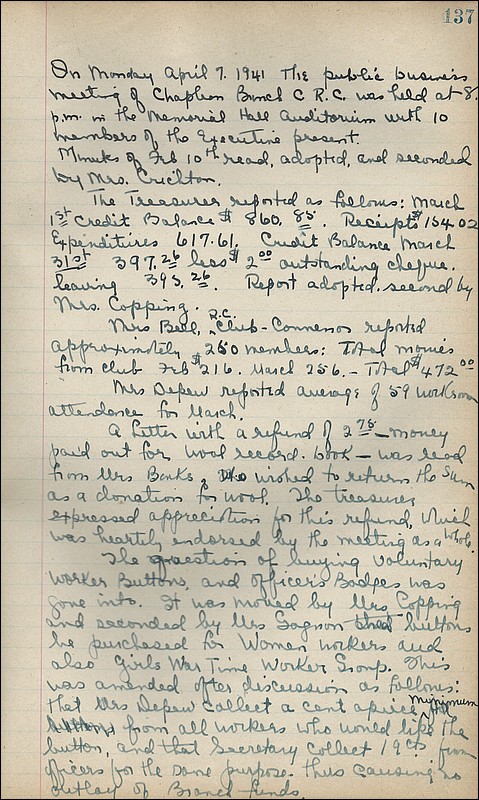 137
On Monday April 7. 1941 The public business
meeting of Chapleau Branch C R.C. was held at 8.
p.m. in the Memorial Hall Auditorium with 10
members of the Executive present.
Minutes of Feb 10th read, adopted, and seconded
by Mrs. Crichton.
The Treasurer reported as follows: March
1st Credit Balance $ 860.85. Receipts $154.02
Expenditures 617.61. Credit Balance March
31st 397.26 less $2.00 outstanding cheque.
leaving 395.26. Report adopted. second by
Mrs. Copping.
Mrs Bell, R.C. Club-Convenor reported
approximately 260 members: Total monies
from club Feb $216. March 256. - Total $472.00
Mrs Depew reported average of 59 workroom
attendance for March.
A letter with a refund of 2.75 - money
paid out for wool record. book - was read
from Mrs Banks, Who wished to return the sum
as a donation for wool. The treasurer
expressed appreciation for this refund, which
was heartily endorsed by the meeting as a whole.
The question of buying voluntary
worker Buttons, and officers Badges was
gone into. It was moved by Mrs Copping
and seconded by Mrs Gagnon that buttons
be purchased for Women workers and
also Girls War Time Worker Group. This
was amended after discussion as follows:
that Mrs Depew collect a cent apiece minimum
from all workers who would like the
button, and that Secretary collect 19cts from
officers for the same purpose. thus causing no
outlay of Branch funds.